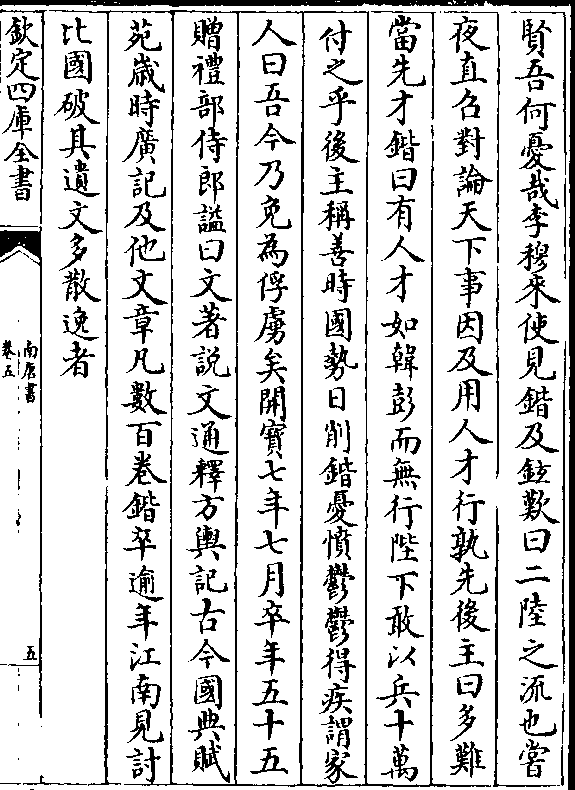 賢吾何憂哉李穆來使見鍇及鉉歎曰二陸之流也嘗
夜直召對論天下事因及用人才行孰先後主曰多難
當先才鍇曰有人才如韓彭而無行陛下敢以兵十萬
付之乎後主稱善時國勢日削鍇憂憤鬱鬱得疾謂家
人曰吾今乃免為俘虜矣開寶七年七月卒年五十五
贈禮部侍郎諡曰文著說文通釋方輿記古今國典賦
苑歲時廣記及他文章凡數百卷鍇卒逾年江南見討
比國破其遺文多散逸者
欽定四庫全書
南唐書
卷五
五